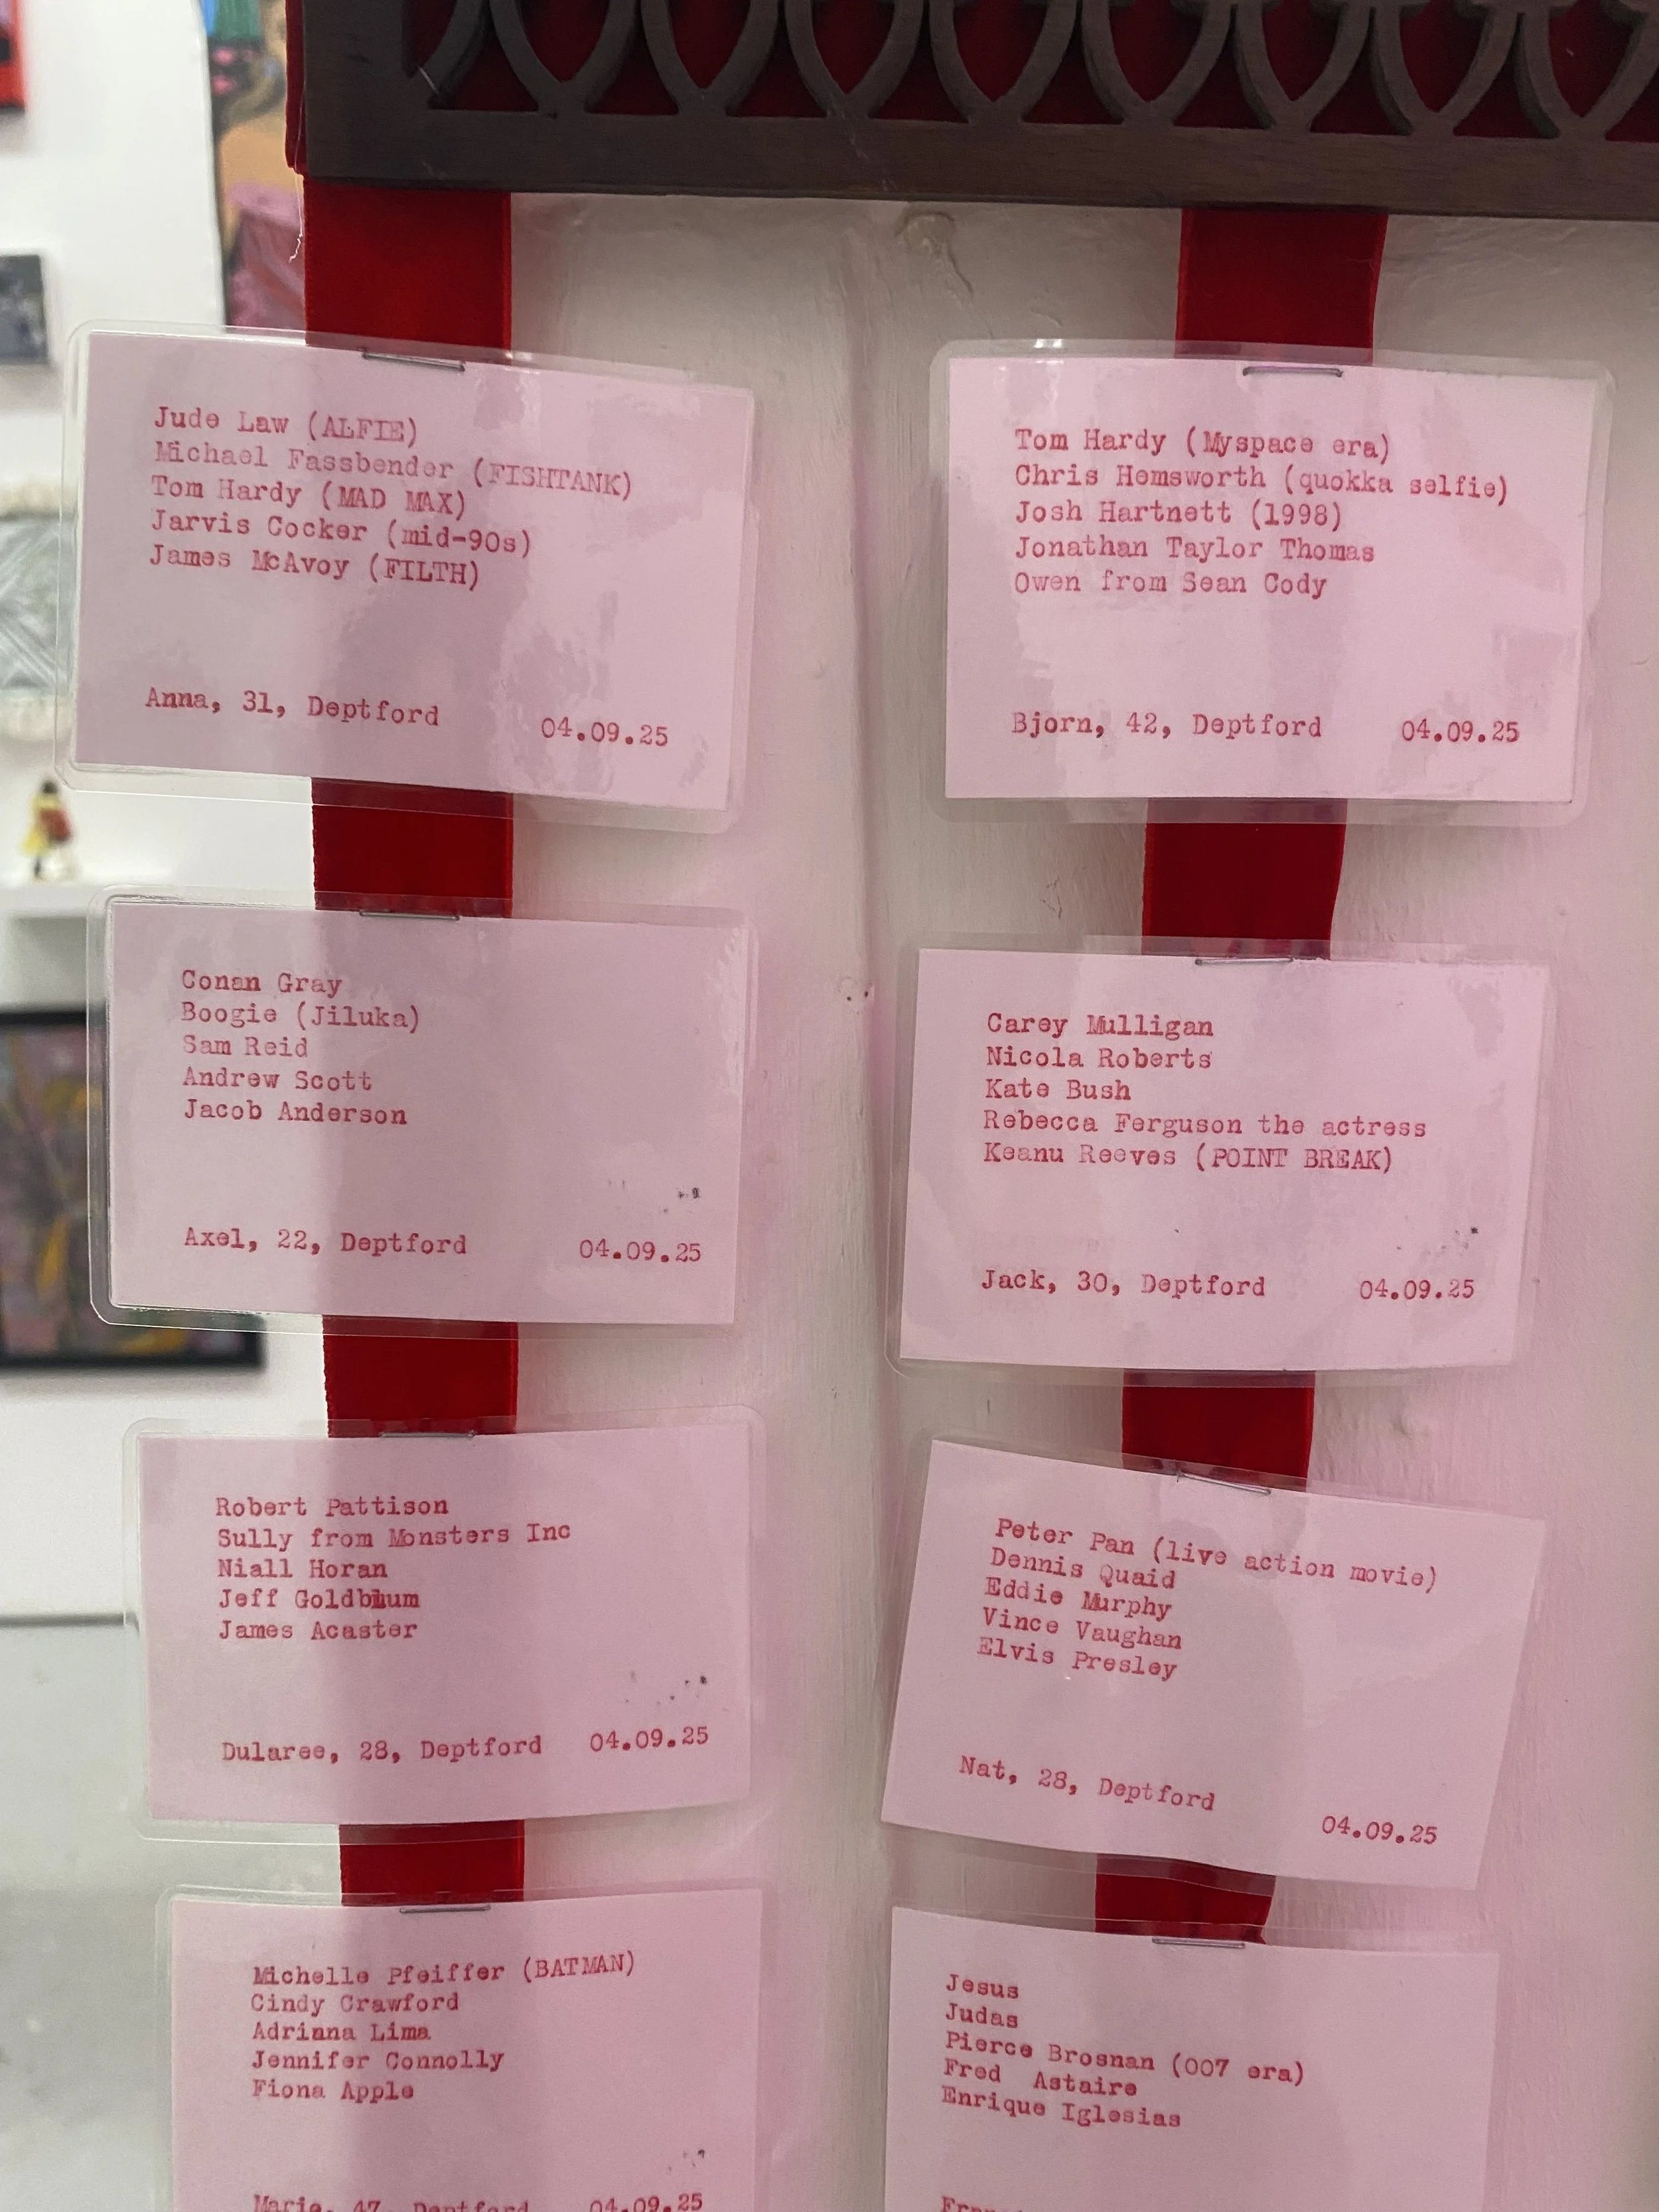 Jude Law (ALFIE)
Michael Fassbender (FISHTANK)
Tom Hardy (MAD MAX)
Jarvis Cocker (mid-90s)
James McAvoy (FILTH)
Anna, 31, Deptford 04.09.25
Tom Hardy (Myspace era)
Chris Hemsworth (quokka selfie)
Josh Hartnett (1998)
Jonathan Taylor Thomas
Owen from Sean Cody
Bjorn, 42, Deptford 04.09.25
Conan Gray
Boogie (Jiluka)
Sam Reid
Andrew Scott
Jacob Anderson
Axel, 22, Deptford 04.09.25
Carey Mulligan
Nicola Roberts
Kate Bush
Rebecca Ferguson the actress
Keanu Reeves (POINT BREAK)
Jack, 30, Deptford 04.09.25
Robert Pattison
Sully from Monsters Inc
Niall Horan
Jeff Goldblum
James Acaster
Dularee, 28, Deptford 04.09.25
Peter Pan (live action movie)
Dennis Quaid
Eddie Murphy
Vince Vaughan
Elvis Presley
Nat, 28, Deptford 04.09.25
Michelle Pfeiffer (BATMAN)
Cindy Crawford
Adrianna Lima
Jennifer Connolly
Fiona Apple
Marie, 47, Deptford 04.09.25
Jesus
Judas
Pierce Brosnan (007 era)
Fred Astaire
Enrique Iglesias